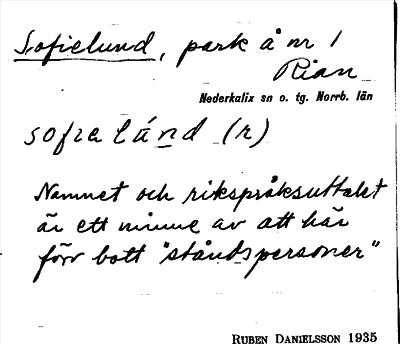 Sofielund, park å nr 1
Rian
Nederkalix sn o. tg. Norrb. län
sofialánd (r)
Namnet och rikspråksuttalet
är ett minne av att här
förv bott "ståndspersoner"
RUBEN DANIELSSON 1935